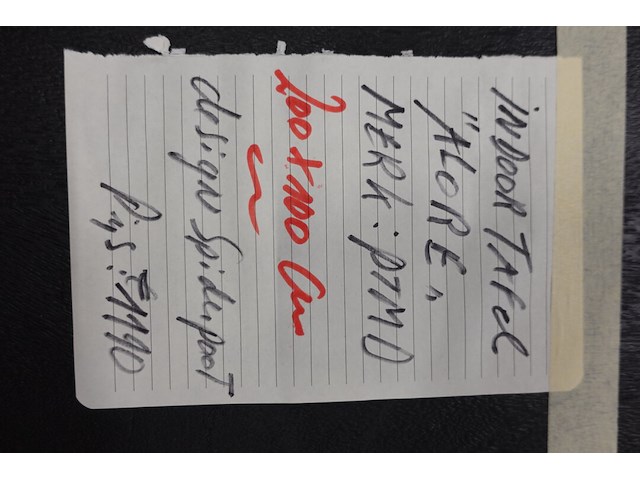 INDOOR TAFEL
"ALORE"
MERK: PTMD
200 x 100 Cm
design Spiderpoot
Prijs: € 1190